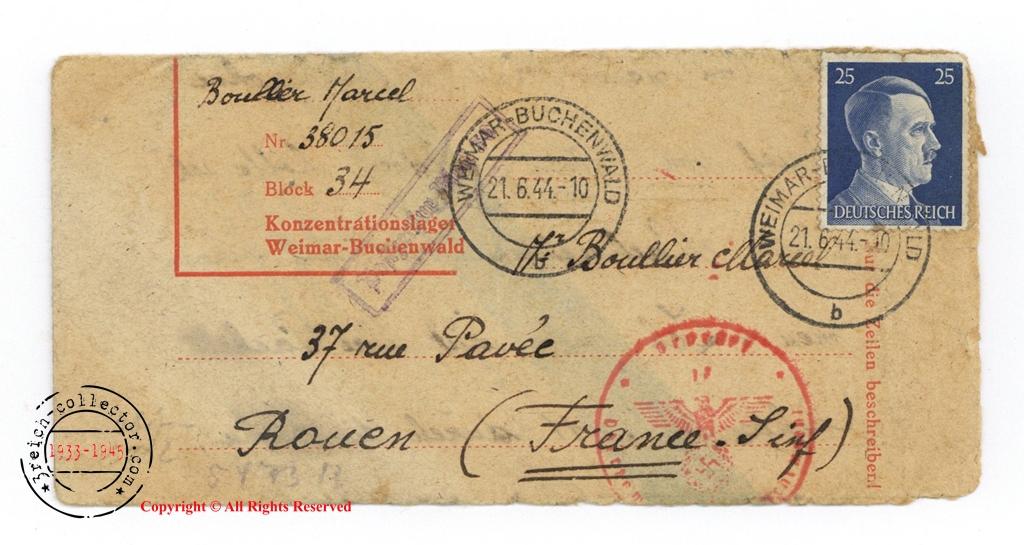 Boullier Marcel
Nr. 38015
Block 34
Konzentrationslager
Weimar-Buchenwald
WEIMAR-BUCHENWALD
21.6.44.-10
b
25 25
DEUTSCHES REICH
WEIMAR-
LD
21.6.44.-10
b
Mr Boullier Marcel
37 rue Pavée
Rouen (France. S. inf)
die Zeilen beschreiben!
3reich-collector.com
1933-1945
Copyright © All Rights Reserved